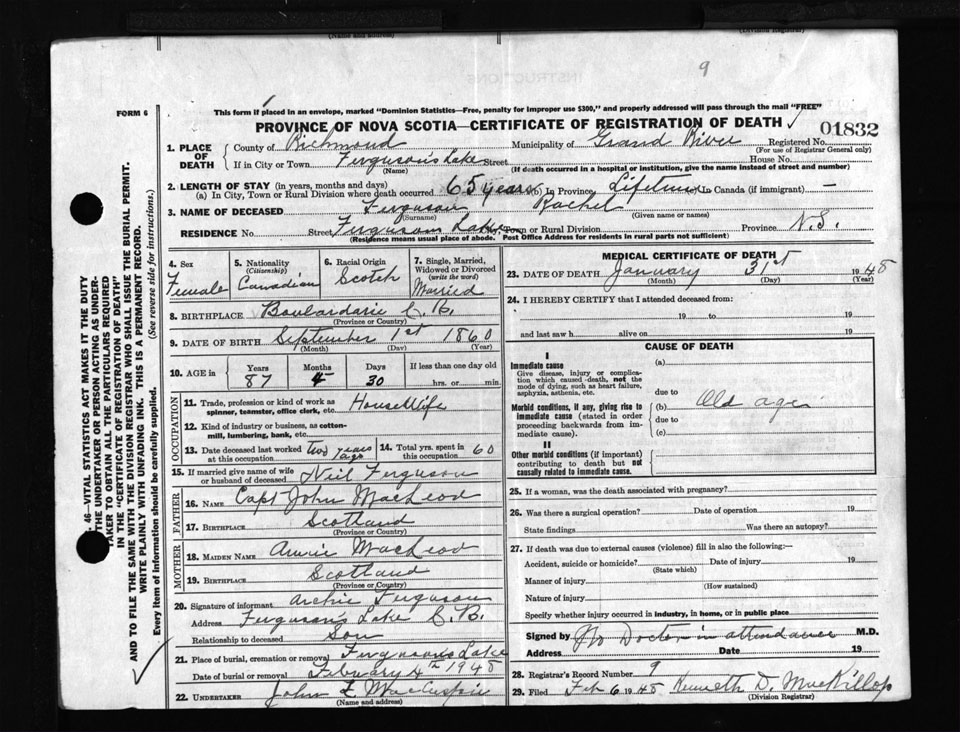 9
FORM 6
This form if placed in an envelope, marked "Dominion Statistics—Free, penalty for improper use $300," and properly addressed will pass through the mail "FREE"
PROVINCE OF NOVA SCOTIA—CERTIFICATE OF REGISTRATION OF DEATH
01832
1. PLACE OF DEATH
County of Richmond Municipality of Grand River Registered No.
(For use of Registrar General only)
If in City or Town Ferguson's Lake Street House No.
(Name) (If death occurred in a hospital or institution, give the name instead of street and number)
2. LENGTH OF STAY (in years, months and days)
(a) In City, Town or Rural Division where death occurred 65 years (b) In Province Lifetime In Canada (if immigrant) —
3. NAME OF DECEASED Ferguson Rachel
(Surname) (Given name or names)
RESIDENCE No. Street Ferguson Lake City, Town or Rural Division Province N.S.
(Residence means usual place of abode. Post Office Address for residents in rural parts not sufficient)
4. Sex Female
5. Nationality (Citizenship) Canadian
6. Racial Origin Scotch
7. Single, Married, Widowed or Divorced (write the word) Married
8. BIRTHPLACE Boulardarie C.B.
(Province or Country)
9. DATE OF BIRTH September 1st 1860
(Month) (Day) (Year)
10. AGE in Years Months Days If less than one day old
87 4 30 hrs. or min.
OCCUPATION
11. Trade, profession or kind of work as spinner, teamster, office clerk, etc. HouseWife
12. Kind of industry or business, as cotton-mill, lumbering, bank, etc.
13. Date deceased last worked at this occupation two years ago
14. Total yrs. spent in this occupation 60
15. If married give name of wife or husband of deceased Neil Ferguson
FATHER
16. NAME Capt John MacLeod
17. BIRTHPLACE Scotland
(Province or Country)
MOTHER
18. MAIDEN NAME Annie MacLeod
19. BIRTHPLACE Scotland
(Province or Country)
20. Signature of informant Archie Ferguson
Address Ferguson's Lake C.B.
Relationship to deceased Son
21. Place of burial, cremation or removal Ferguson's Lake
Date of burial or removal February 4th 1948
22. UNDERTAKER John
(Name and address)
MEDICAL CERTIFICATE OF DEATH
23. DATE OF DEATH January 31st 1948
(Month) (Day) (Year)
24. I HEREBY CERTIFY that I attended deceased from:
19 to 19
and last saw h alive on 19
CAUSE OF DEATH
I
Immediate cause (a)
Give disease, injury or complication which caused death, not the mode of dying, such as heart failure, asphyxia, asthenia, etc.
due to
Morbid conditions, if any, giving rise to immediate cause (stated in order proceeding backwards from immediate cause).
(b) Old age
due to
(c)
II
Other morbid conditions (if important) contributing to death but not causally related to immediate cause.
25. If a woman, was the death associated with pregnancy?
26. Was there a surgical operation? Date of operation 19
State findings Was there an autopsy?
27. If death was due to external causes (violence) fill in also the following:—
Accident, suicide or homicide? Date of injury 19
(State which)
Manner of injury
(How sustained)
Nature of injury
Specify whether injury occurred in industry, in home, or in public place
Signed by No Doctor in attendance M.D.
Address Date 19
28. Registrar's Record Number 9
29. Filed Feb 6 1948 Kenneth D. MacKillop
(Division Registrar)
46—VITAL STATISTICS ACT MAKES IT THE DUTY
THE UNDERTAKER OR PERSON ACTING AS UNDER-
TAKER TO OBTAIN ALL THE PARTICULARS REQUIRED
IN THE "CERTIFICATE OF REGISTRATION OF DEATH"
AND TO FILE THE SAME WITH THE DIVISION REGISTRAR WHO SHALL ISSUE THE BURIAL PERMIT.
WRITE PLAINLY WITH UNFADING INK. THIS IS A PERMANENT RECORD.
Every item of information should be carefully supplied. (See reverse side for instructions.)